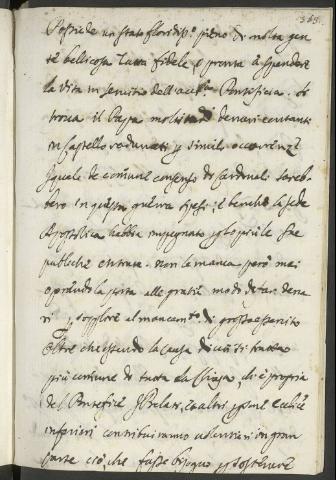 365.
Possiede un stato floridiss.o pieno di molta gen
te bellicosa tutta fidele, e pronta à spendere
la vita in servitio dell'aut.tà Pontificia. Si
trova il Papa molti denari contanti
in Castello radunati p simili occorrenze
li quali de comune consenso de Cardinali sareb
bero in questa guerra spesi; e benche la sede
Apostolica habbia impegnato p lo più le sue
publiche entrate. non le manca però mai
aprendo la porta alle gratie modo di far dena
ri p supplire al mancam.to di
Oltre che essendo la causa di cui si tratta
più comune di tutta la Chiesa, che propria
del Pontefice Prelati, et altri persone eccl.che
inferiori contribuiranno volentieri in gran
parte ciò, che fusse bisogno p sostenere